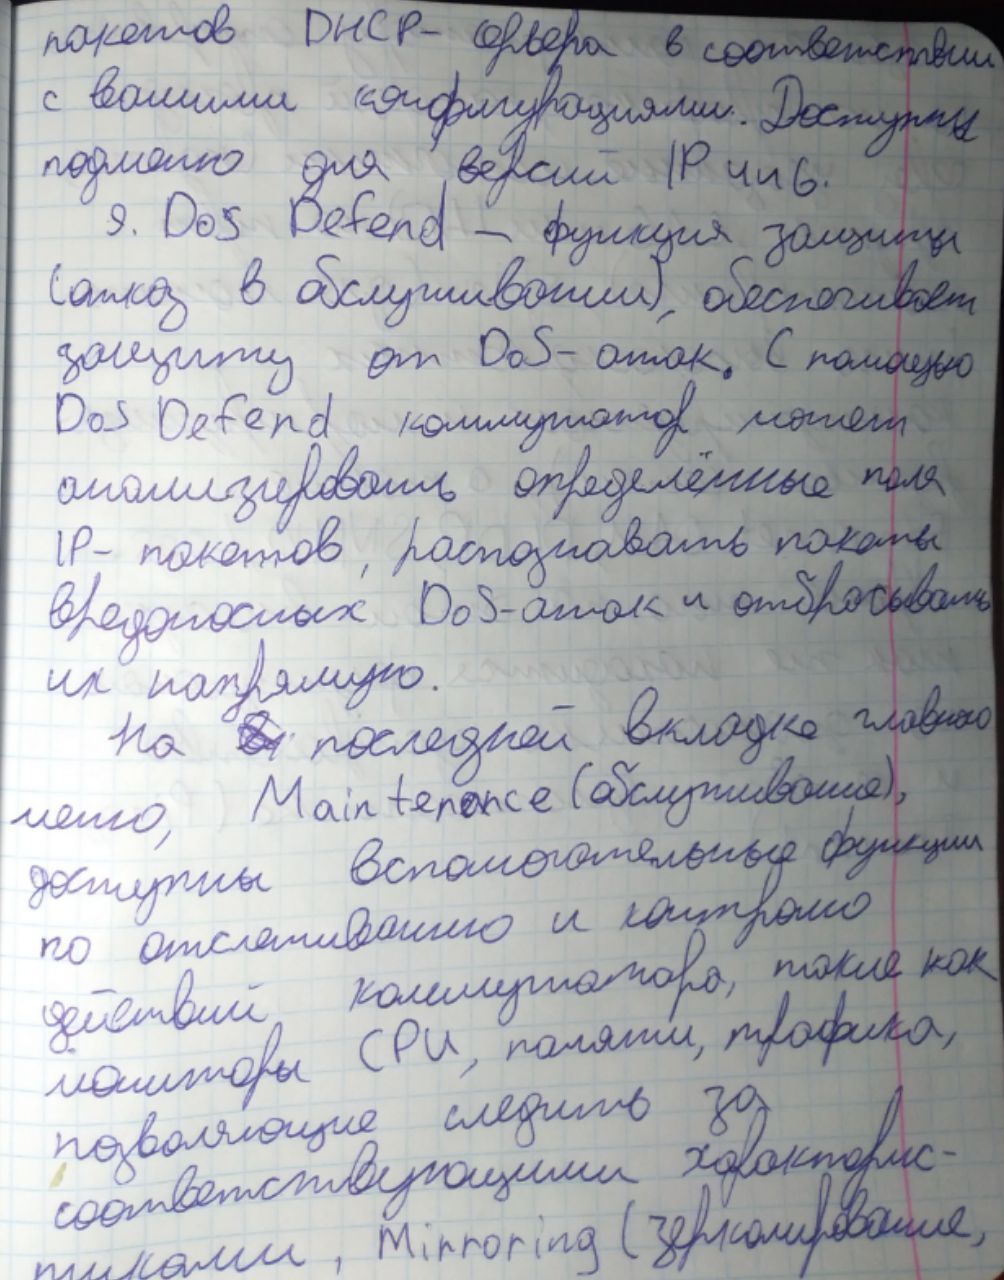 пакетов DHCP-сервера в соответствии
с вашими конфигурациями. Доступны
подменю для версий IP 4 и 6.
я. DoS Defend – функция защиты
(отказ в обслуживании), обеспечивает
защиту от DoS-атак. С помощью
DoS Defend коммутатор может
анализировать определённые поля
IP-пакетов, распознавать пакеты
вредоносных DoS-атак и отбрасывать
их напрямую.
На последней вкладке главного
меню, Maintenance (обслуживание),
доступны вспомогательные функции
по отслеживанию и контролю
действий коммутатора, такие как
мониторы CPU, памяти, трафика,
позволяющие следить за
соответствующими характерис-
тиками, Mirroring (зеркалирование,